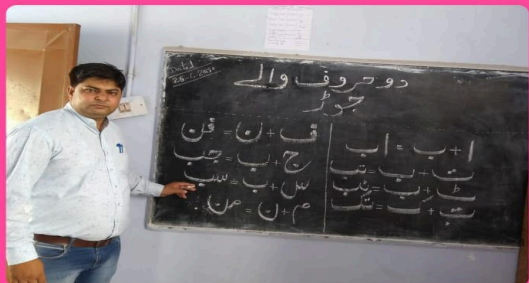 دو حروف والے
جوڑ
ا + ب = اب
ت + ب = تب
ٹ + ب = ٹب
ت + ک = تک
ف + ن = فن
ج + ب = جب
س + ب = سب
م + ن = من